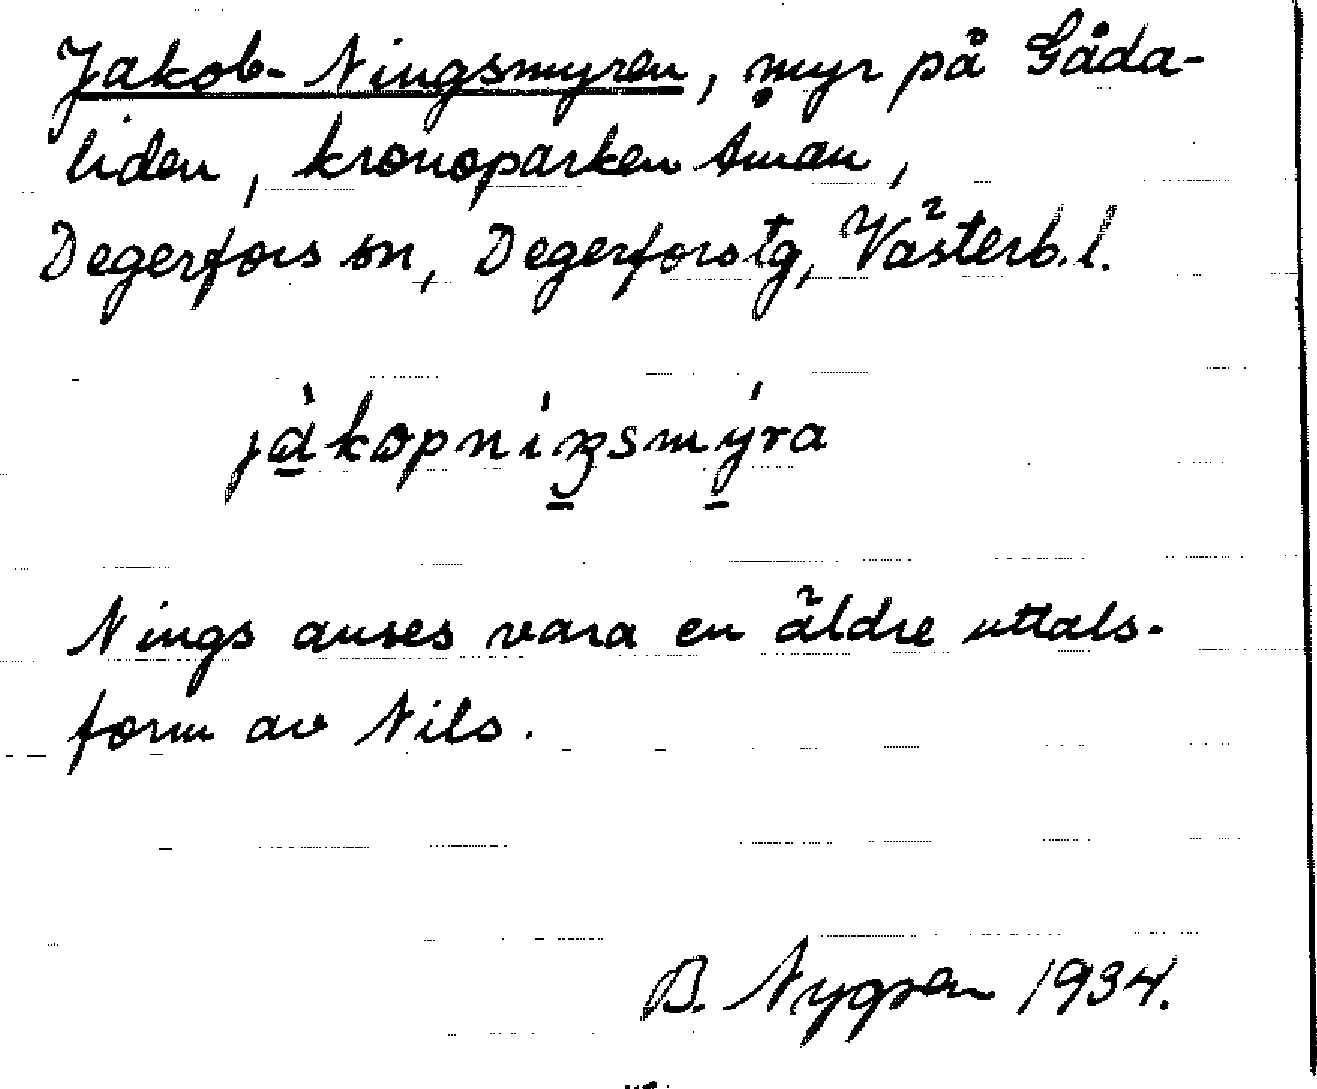 Jakob-Ningsmyren, myr på Gåda-
liden, kronoparken Åman,
Degerfors sn, Degerfors tg, Västerb. l.
jàkopníŋsmýra
Nings anses vara en äldre uttals-
form av Nils.
B. Nygren 1934.